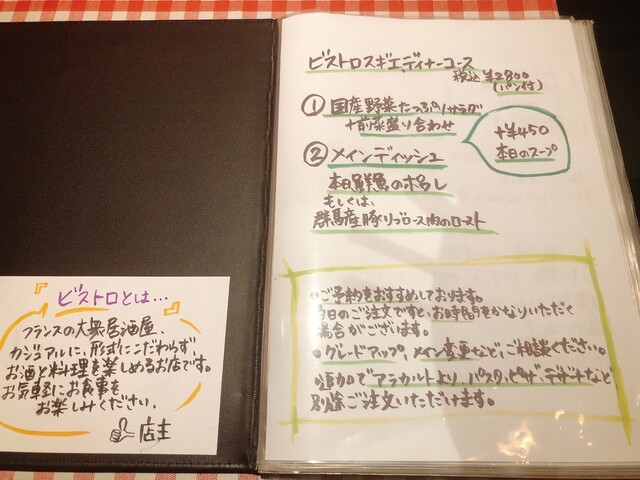 ビストロスギエディナーコース
税込 ¥2800
(パン付)
① 国産野菜たっぷりサラダ
+前菜盛り合わせ
+¥450
本日のスープ
② メインディッシュ
本日鮮魚のポワレ
もしくは、
群馬産豚リブロース肉のロースト
○ご予約をおすすめしております。
当日のご注文ですと、お時間をかなりいただく
場合がございます。
○グレードアップ、メイン変更など、ご相談ください。
○追加でアラカルトより、パスタ、ピザ、デザートなど
別途ご注文いただけます。
『ビストロとは…』
フランスの大衆居酒屋、
カジュアルに、形式にこだわらず、
お酒と料理を楽しめるお店です。
お気軽にお食事を
お楽しみください。
店主